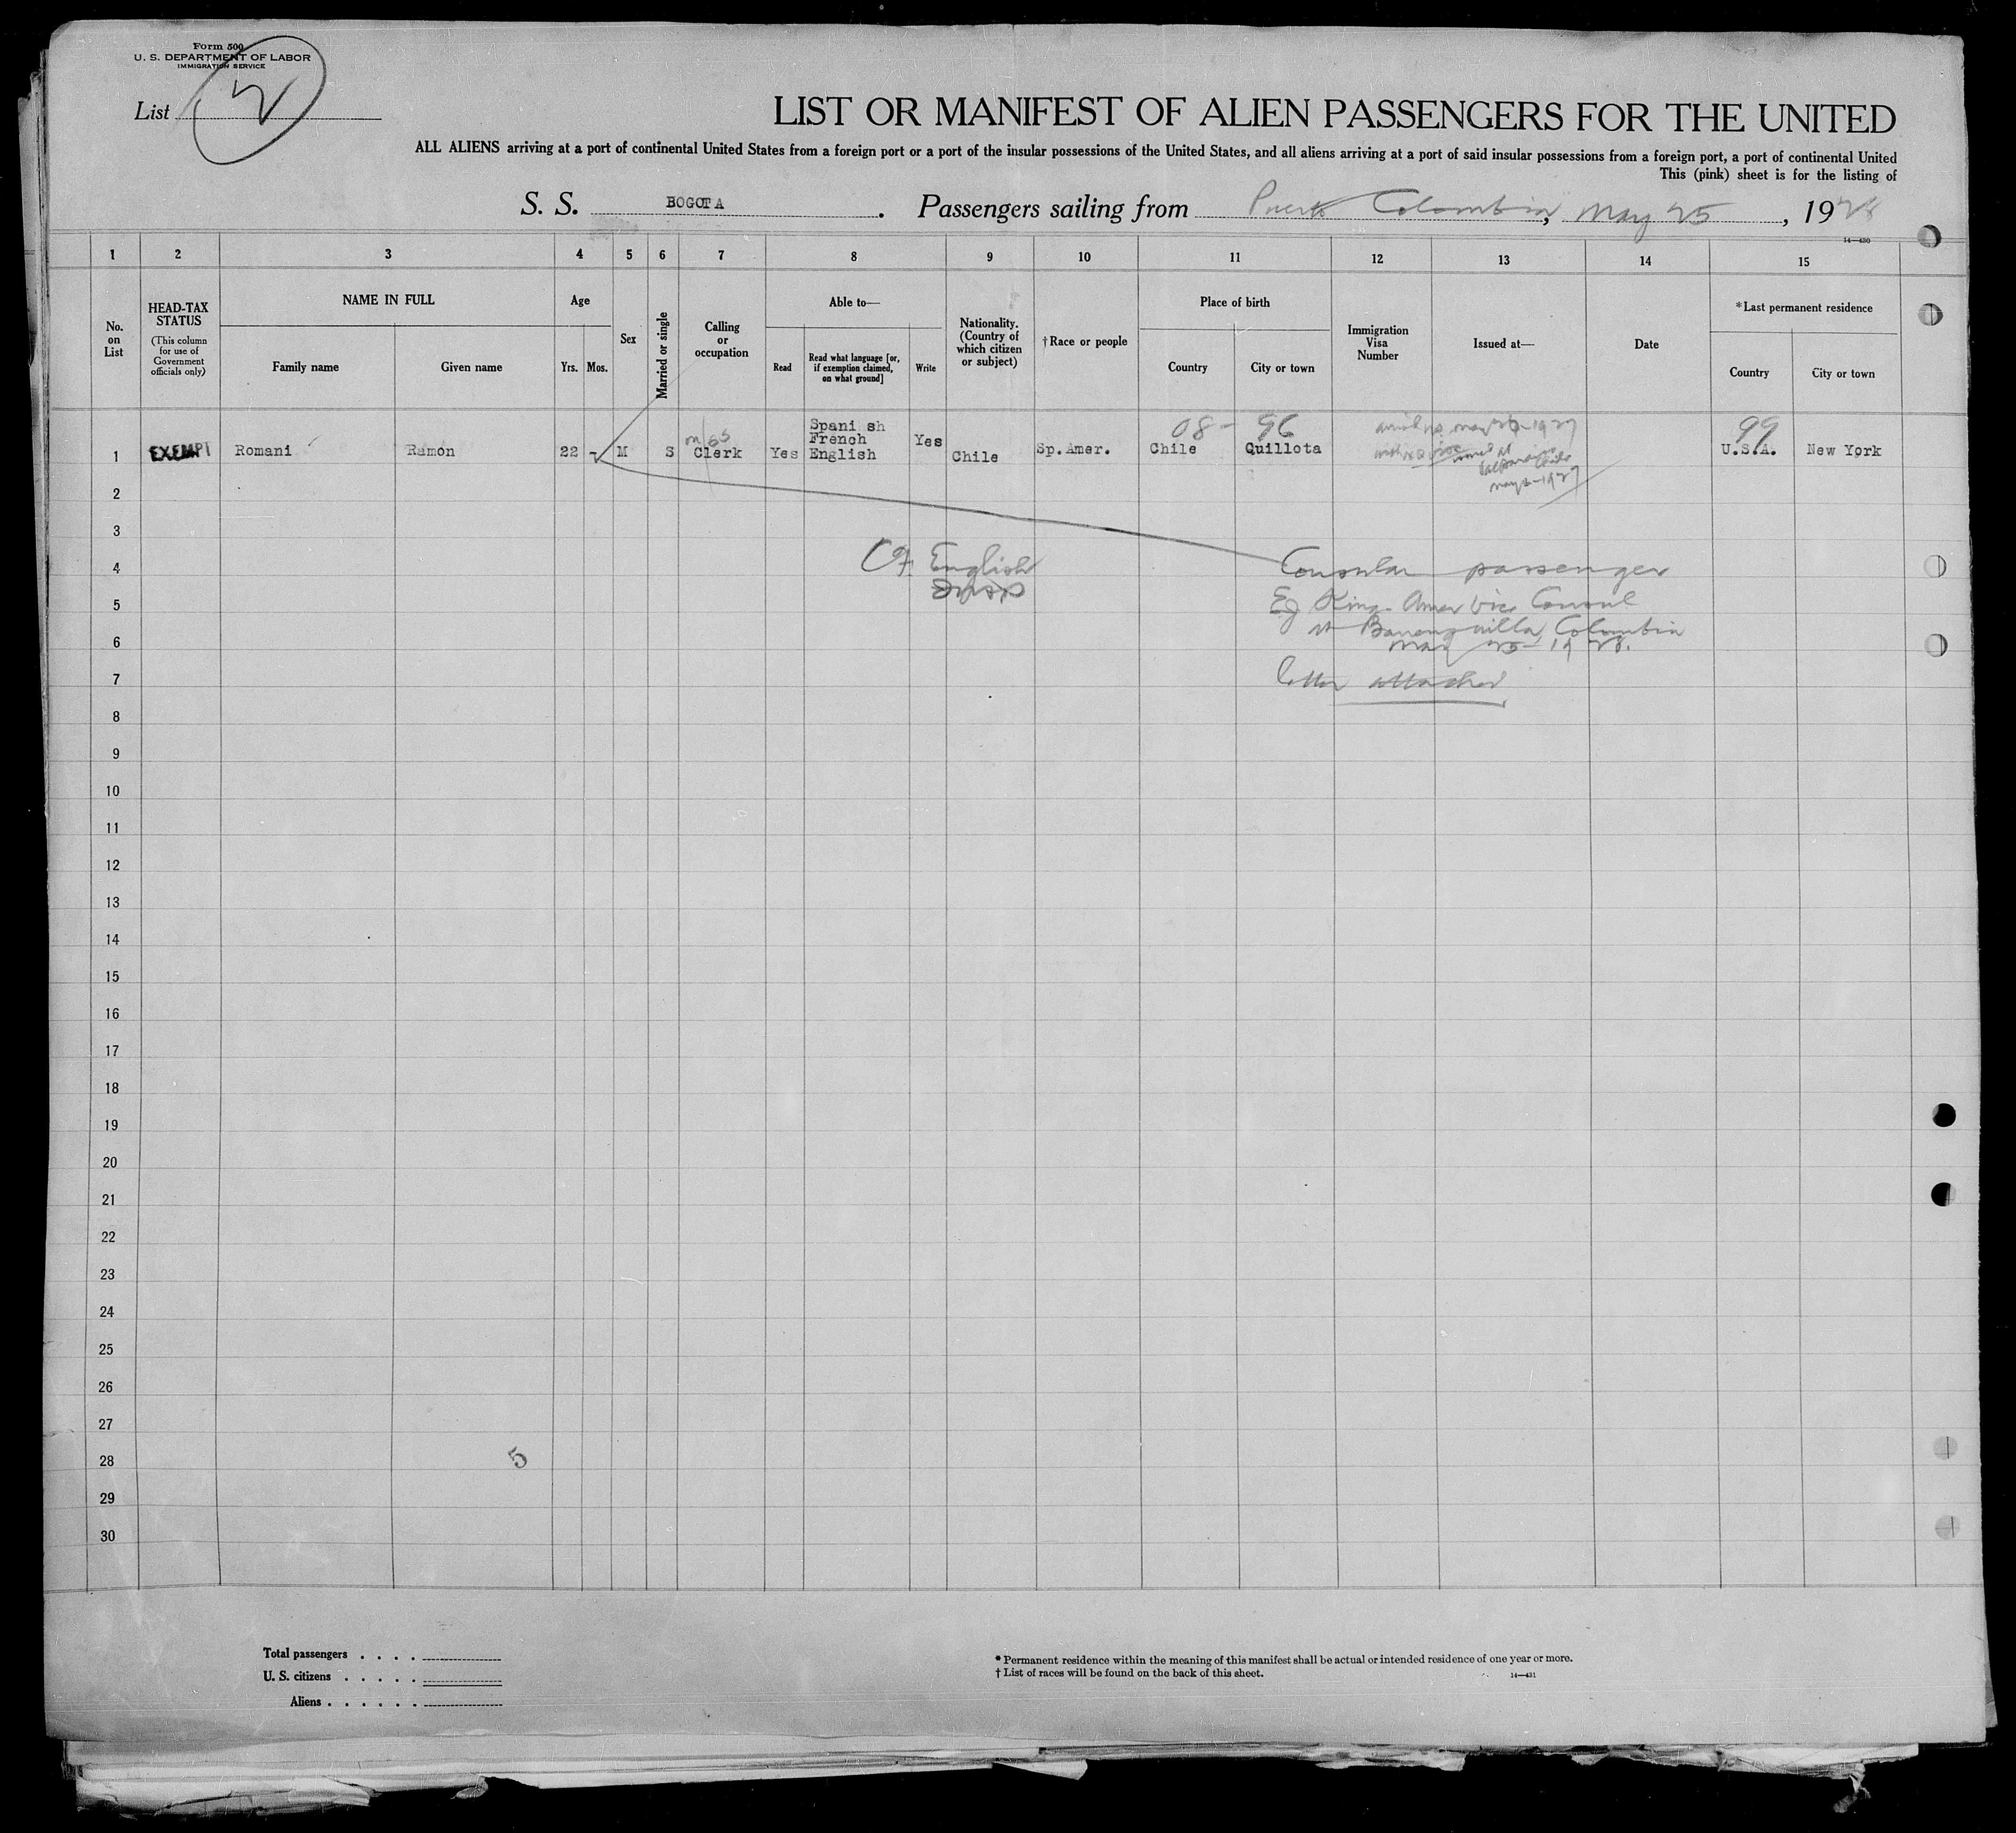 Form 500
U. S. DEPARTMENT OF LABOR
IMMIGRATION SERVICE
List 2
LIST OR MANIFEST OF ALIEN PASSENGERS FOR THE UNITED
ALL ALIENS arriving at a port of continental United States from a foreign port or a port of the insular possessions of the United States, and all aliens arriving at a port of said insular possessions from a foreign port, a port of continental United
This (pink) sheet is for the listing of
S. S. BOGOTA. Passengers sailing from Puerto Colombia, May 25, 1928
14—430
1 2 3 4 5 6 7 8 9 10 11 12 13 14 15
No. on List
HEAD-TAX STATUS
(This column for use of Government officials only)
NAME IN FULL
Family name
Given name
Age
Yrs.
Mos.
Sex
Married or single
Calling or occupation
Able to—
Read
Read what language [or, if exemption claimed, on what ground]
Write
Nationality. (Country of which citizen or subject)
†Race or people
Place of birth
Country
City or town
Immigration Visa Number
Issued at—
Date
*Last permanent residence
Country
City or town
08- 96 99
1 EXEMPT Romani Ramon 22 - M S Clerk Yes Spani sh French English Yes Chile Sp.Amer. Chile Quillota U.S.A. New York
issued at
Valparaiso
Chile
1927
2
3
4 English Consular passenger
5 King Amer Vice Consul
6 at Barranquilla, Colombia
May 25 1928.
7 letter attached
8
9
10
11
12
13
14
15
16
17
18
19
20
21
22
23
24
25
26
27
28 5
29
30
Total passengers . . . .
U. S. citizens . . . . .
Aliens . . . . . .
* Permanent residence within the meaning of this manifest shall be actual or intended residence of one year or more.
† List of races will be found on the back of this sheet.
14—431